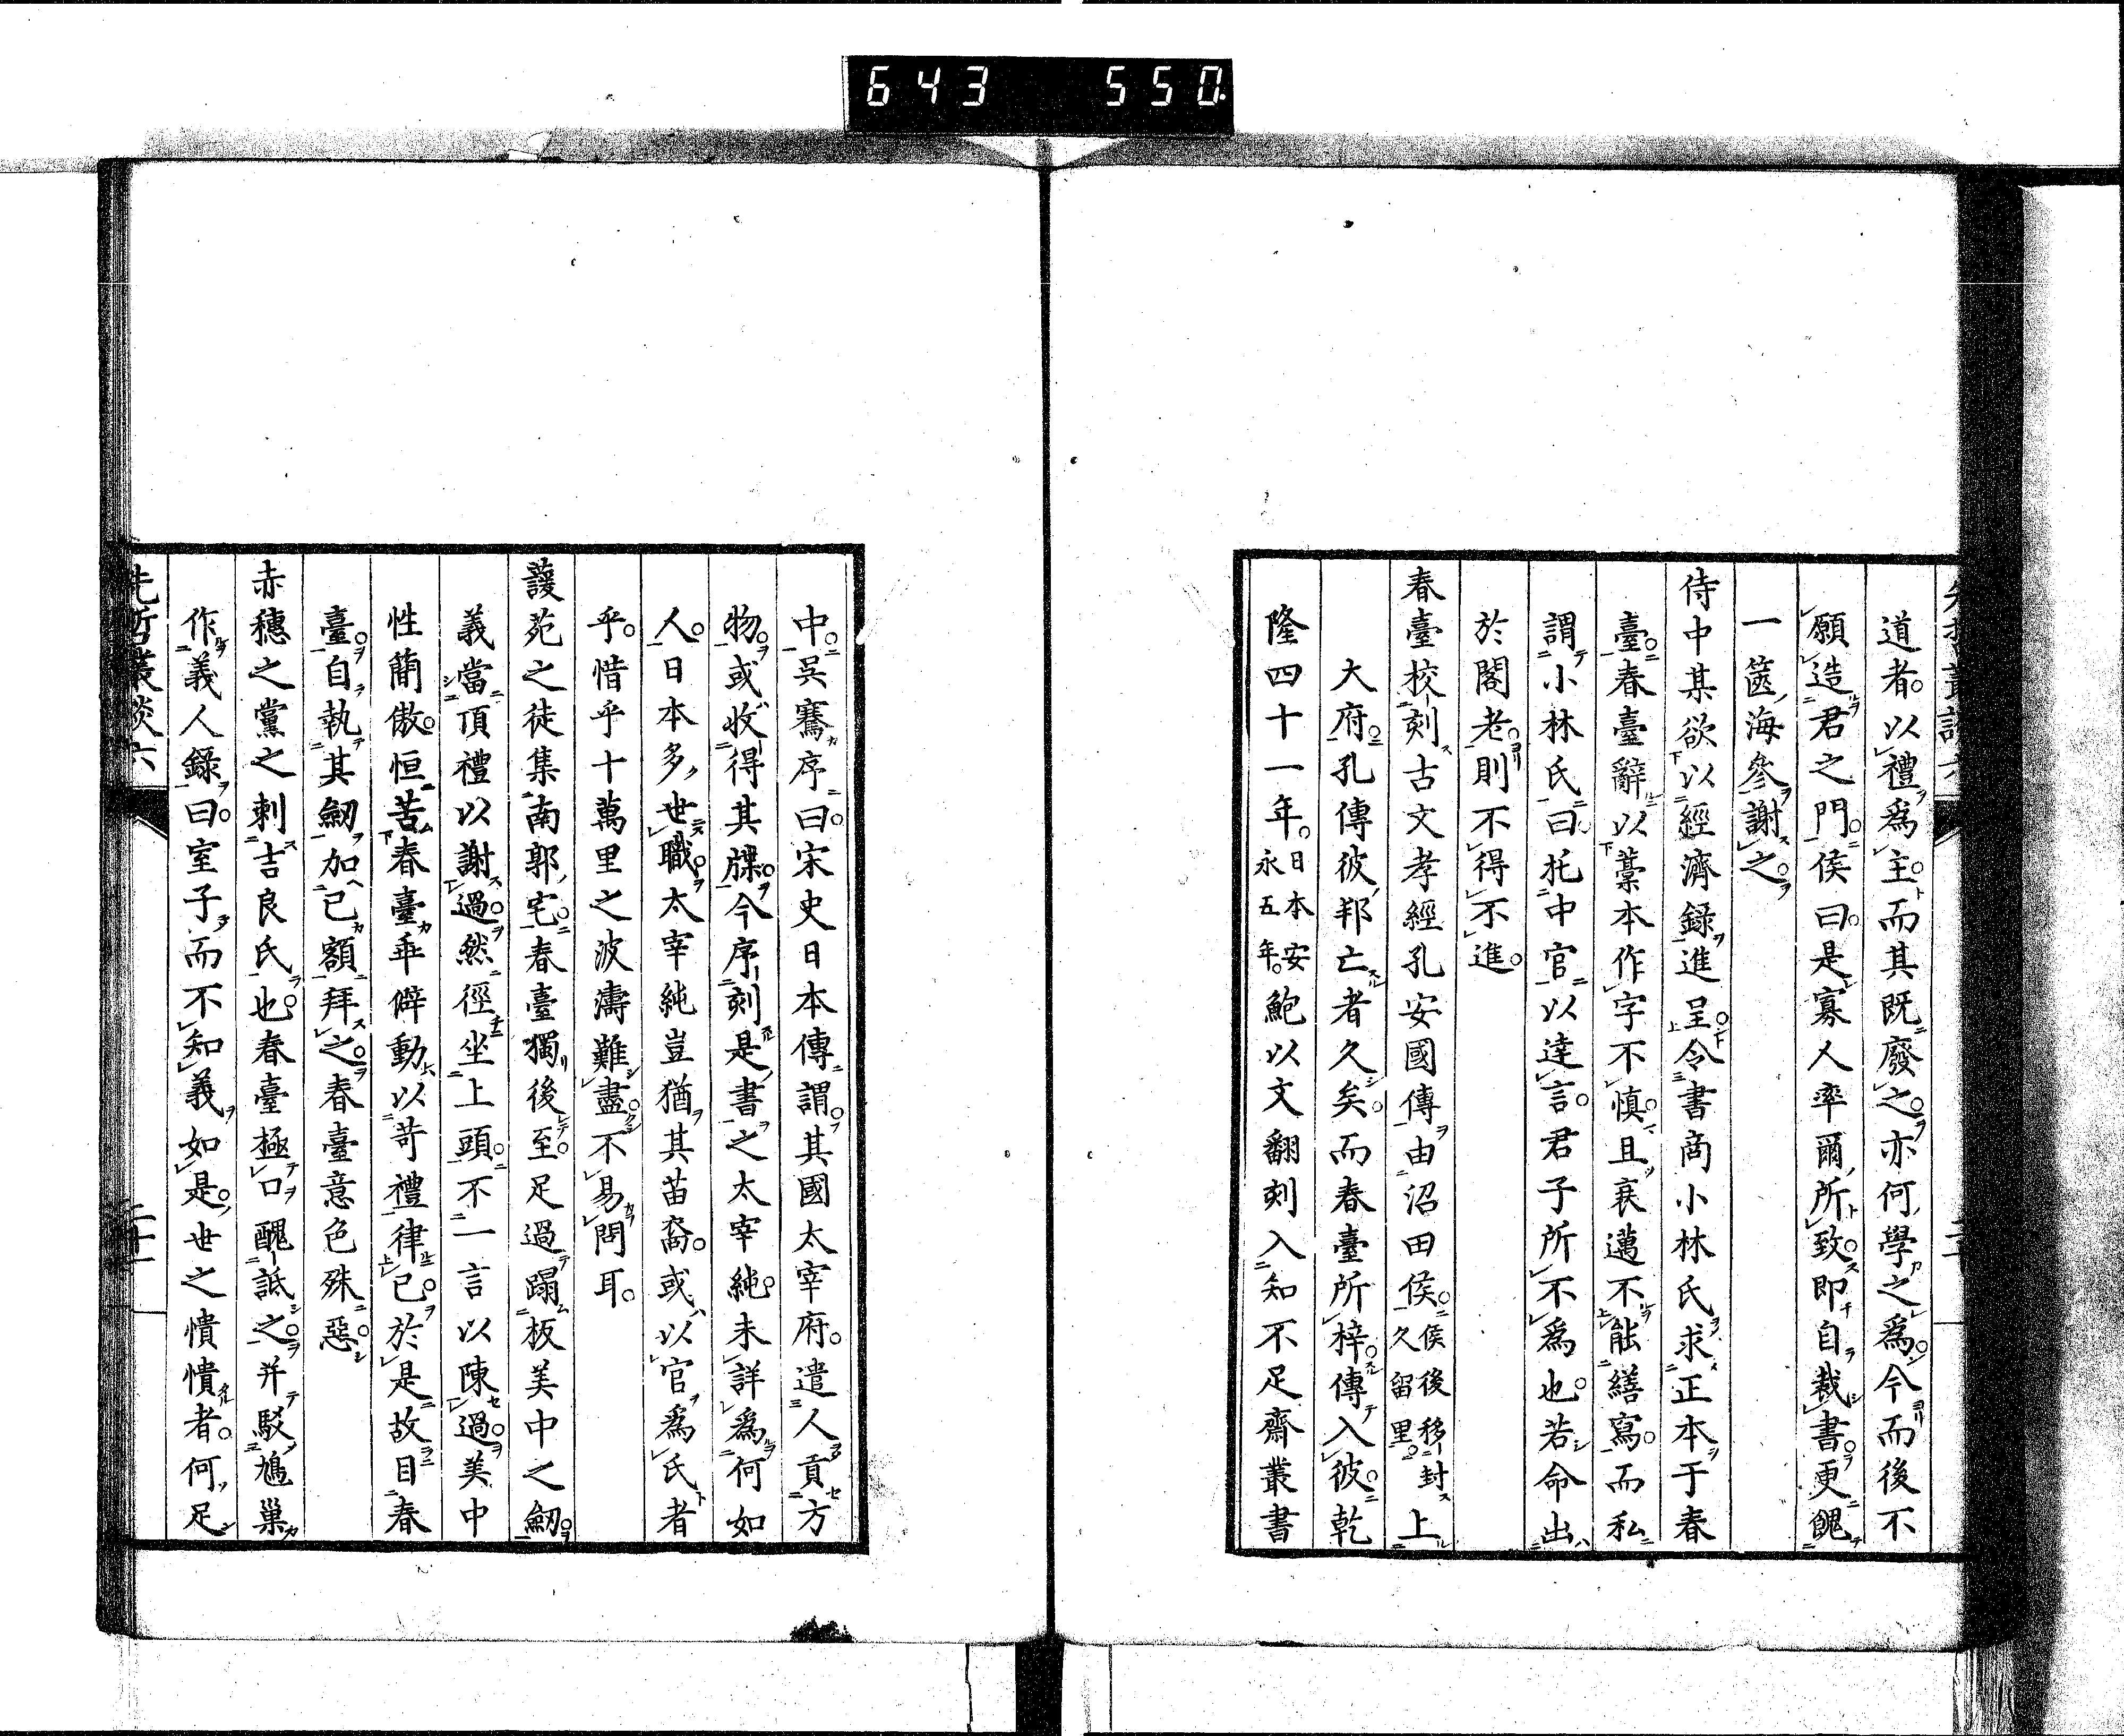 643 550
道者以禮爲主而其既廢之亦何學之爲今而後不
願造君之門侯曰是寡人率爾所致即自裁書更餽
一篋海參謝之
侍中某欲以經濟錄進呈令書商小林氏求正本于春
臺春臺辭以藁本作字不慎且衰邁不能繕寫而私
謂小林氏曰托中官以達言君子所不爲也若命出
於閣老則不得不進
春臺校刻古文孝經孔安國傳由沼田侯侯後移封久留里上
大府孔傳彼邦亡者久矣而春臺所梓傳入彼乾
隆四十一年日本安永五年鮑以文翻刻入知不足齋叢書
中吳騫序曰宋史日本傳謂其國太宰府遣人貢方
物或收得其牒今序刻是書之太宰純未詳爲何如
人日本多世職太宰純豈猶其苗裔或以官爲氏者
乎惜乎十萬里之波濤難盡不易問耳
蘐苑之徒集南郭宅春臺獨後至足過蹋板美中之劒
義當頂禮以謝過然徑坐上頭不一言以陳過美中
性簡傲恒苦春臺乖僻動以苛禮律己於是故目春
臺自執其劒加己額拜之春臺意色殊惡
赤穗之黨之刺吉良氏也春臺極口醜詆之并駁鳩巢
作義人錄曰室子而不知義如是世之憒憒者何足
先哲叢談六